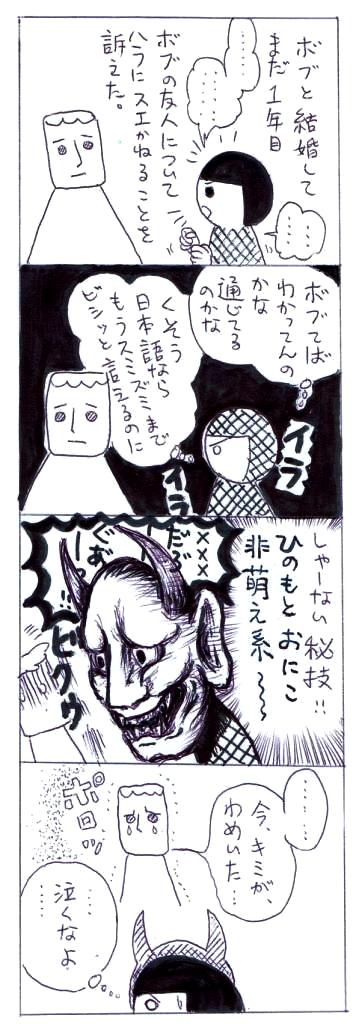 ボブと結婚して
まだ1年目
……
……
……
ボブの友人について
ハラにスエかねることを
訴えた。
ボブてば
わかってんの
かな
通じてる
のかな
イラ
くそう
日本語なら
もうスミズミまで
ビシッと言えるのに
イラ
しゃーない秘技!!
ひのもとおにこ
非萌え系〜〜
×××
ビクゥ
……
今、キミが、
わめいた…
ポロッ
……
泣くなよ
……